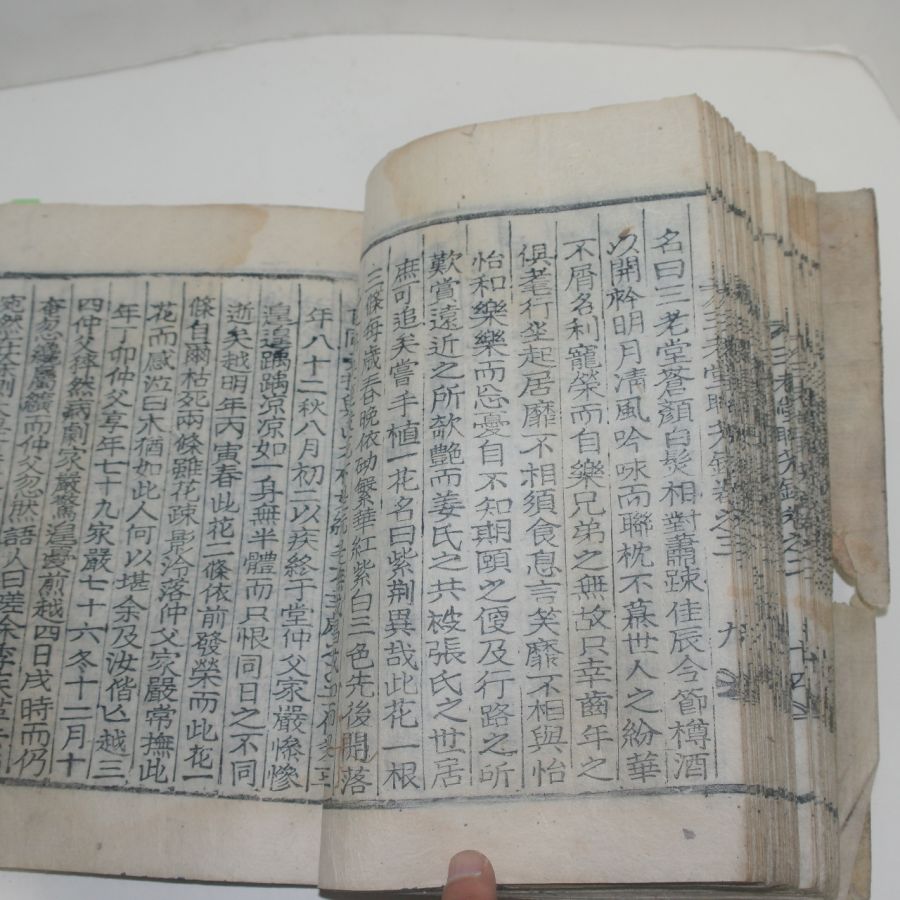 三老堂聯芳錄卷之三 九
名曰三老堂蒼顔白髮相對蕭踈佳辰令節樽酒
以開衿明月淸風吟咏而聯枕不慕世人之紛華
不屑名利寵榮而自樂兄弟之無故只幸齒年之
俱耄行坐起居靡不相須食息言笑靡不相與怡
怡和樂樂而忘憂自不知期頤之偪及行路之所
歎賞遠近之所欽艶而姜氏之共被張氏之世居
庶可追矣嘗手植一花名曰紫荆異哉此花一根
三條每歲春晩依砌繁華紅紫白三色先後開落
年八十二秋八月初二以疾終于堂仲父家嚴慘慘
遑遑踽踽凉凉如一身無半體而只恨同日之不同
逝矣越明年丙寅春此花二條依前發榮而此花一
條自爾枯死兩條雖花疎影冷落仲父家嚴常撫此
花而感泣曰木猶如此人何以堪余及汝偕亾越三
年丁卯仲父享年七十九家嚴七十六冬十二月十
四仲父猝然病劇家嚴驚遑憂煎越四日戌時而仍
奄忽纔屬纊而仲父忽然語人曰嗟余季
宛然在